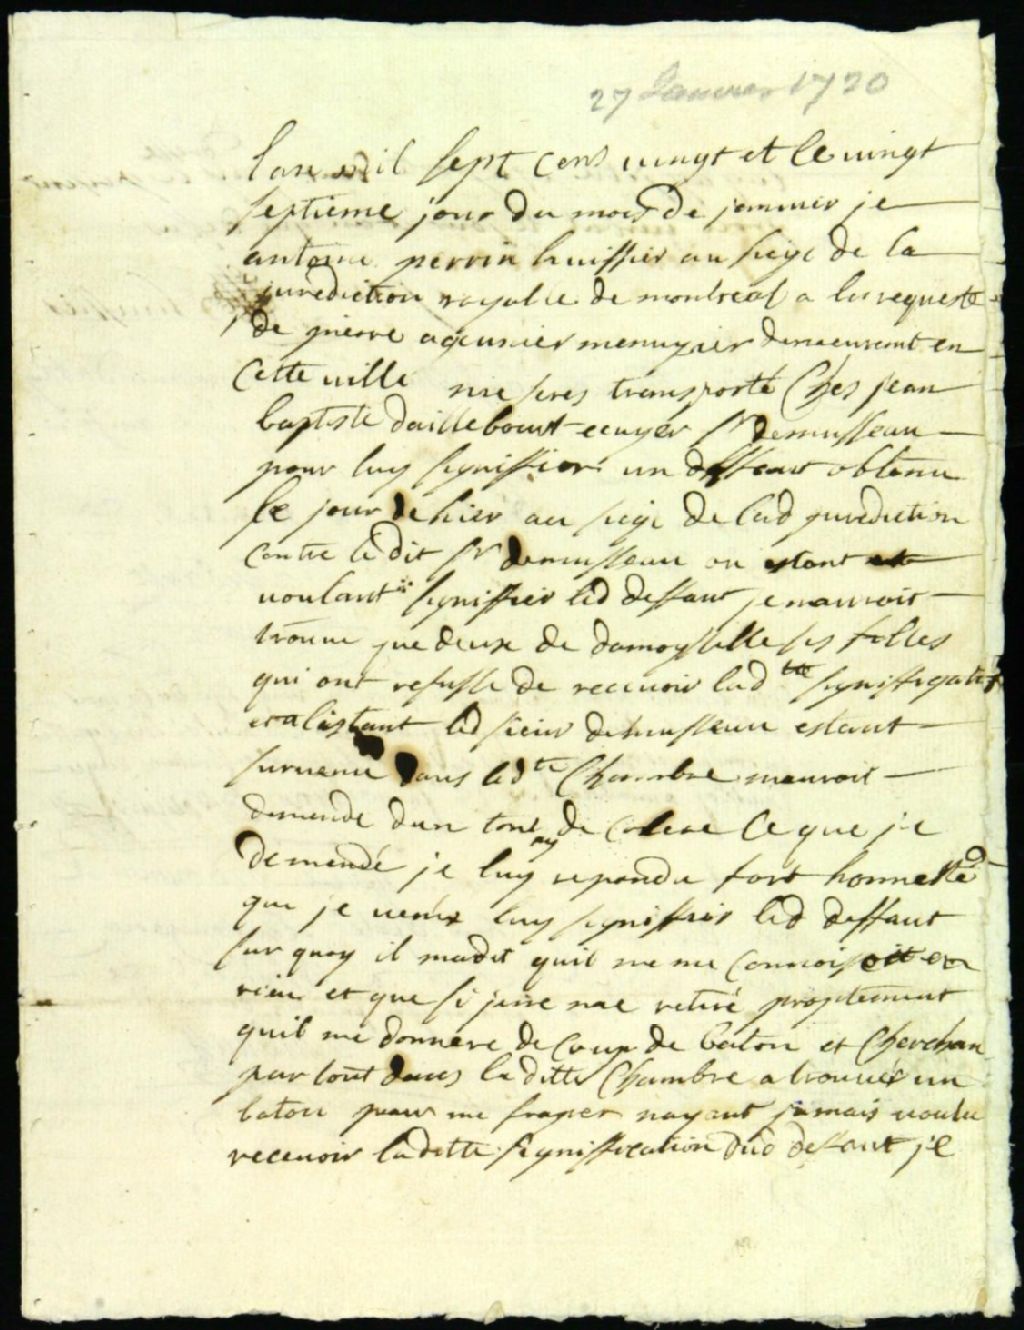 27 Janvier 1720
lan mil sept cens vingt et le vingt
septieme jour du mois de janvier je
antoine perrin huissier au siege de la
jurediction royalle de montreal a la requeste
de pierre menuzier demeurant en
cette ville me seres transporté Ches jean
baptiste dailleboust ecuyer Sr demusseau
pour luy signiffier un deffaut obtenu
le jour dehier au siege de lad jurediction
contre le dit Sr demusseau ou estant
voulant signiffier led deffaut je nauroit
trouvé que deux de damoyselle ses filles
qui ont refusse de recevoir lad te signiffigation
et a listant led sieur demusseau estant
survenu dans led te Chambre mauroit
demandé dun ton de colere ce que je
demendé je luy repondu fort honneste
que je venir luy signiffier led deffaut
sur quoy il madit quil me me connoissoit en
rien et que si je ne retiré proptement
quil me donnere de coup de baton et cherchan
par tout dans la ditte Chambre a trouvér un
baton pour me fraper nayant jamais voulu
recevoir laditte signiffication dud deffaut je